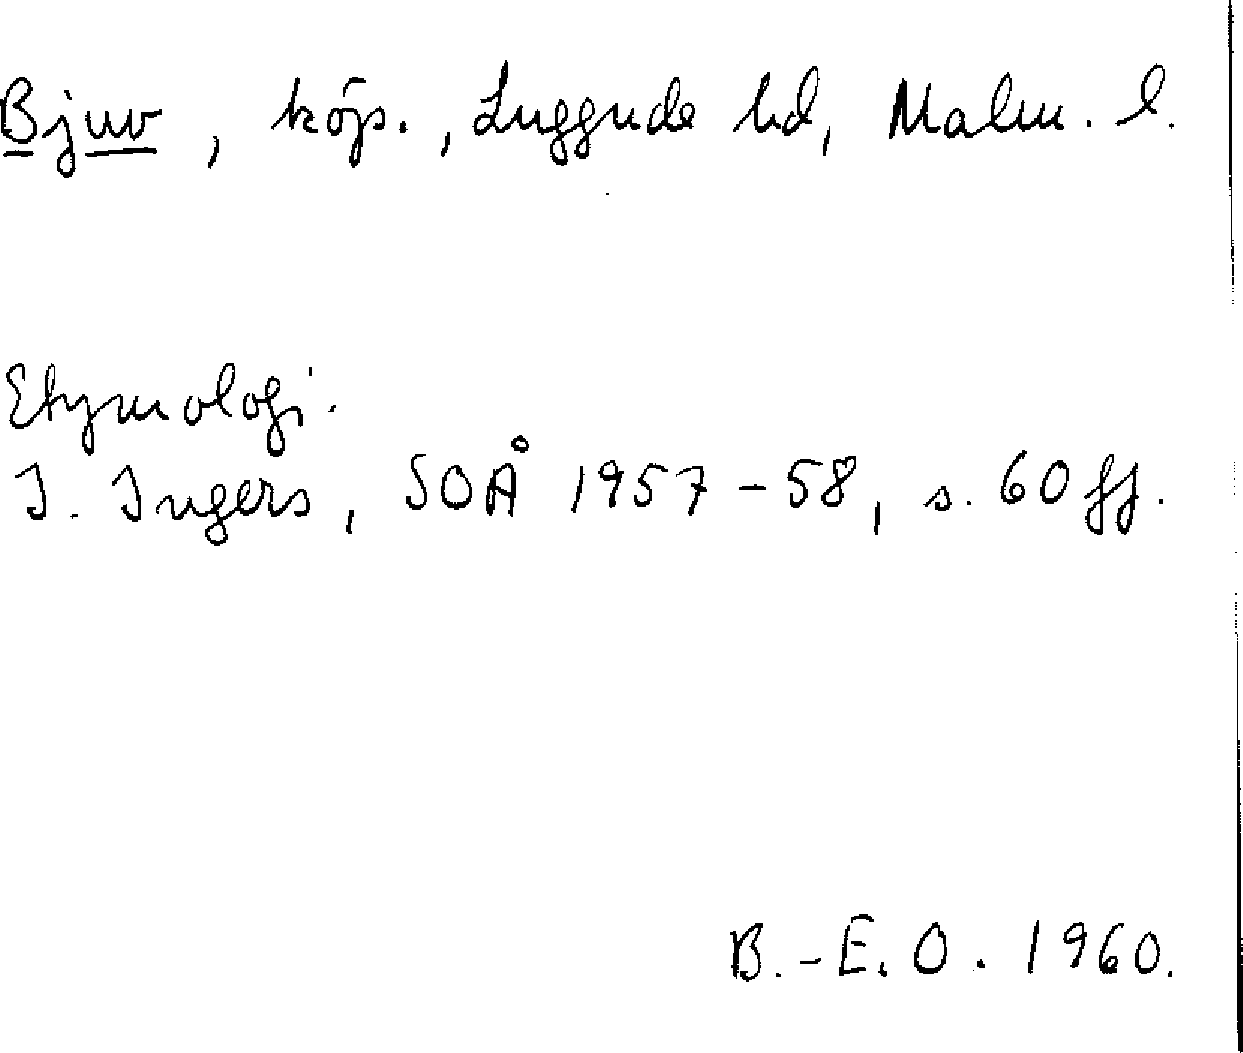 Bjuv, köp., Luggude hd, Malm. l.
Etymologi.
I. Ingers, SOÅ 1957-58, s. 60 ff.
B.-E. O. 1960.